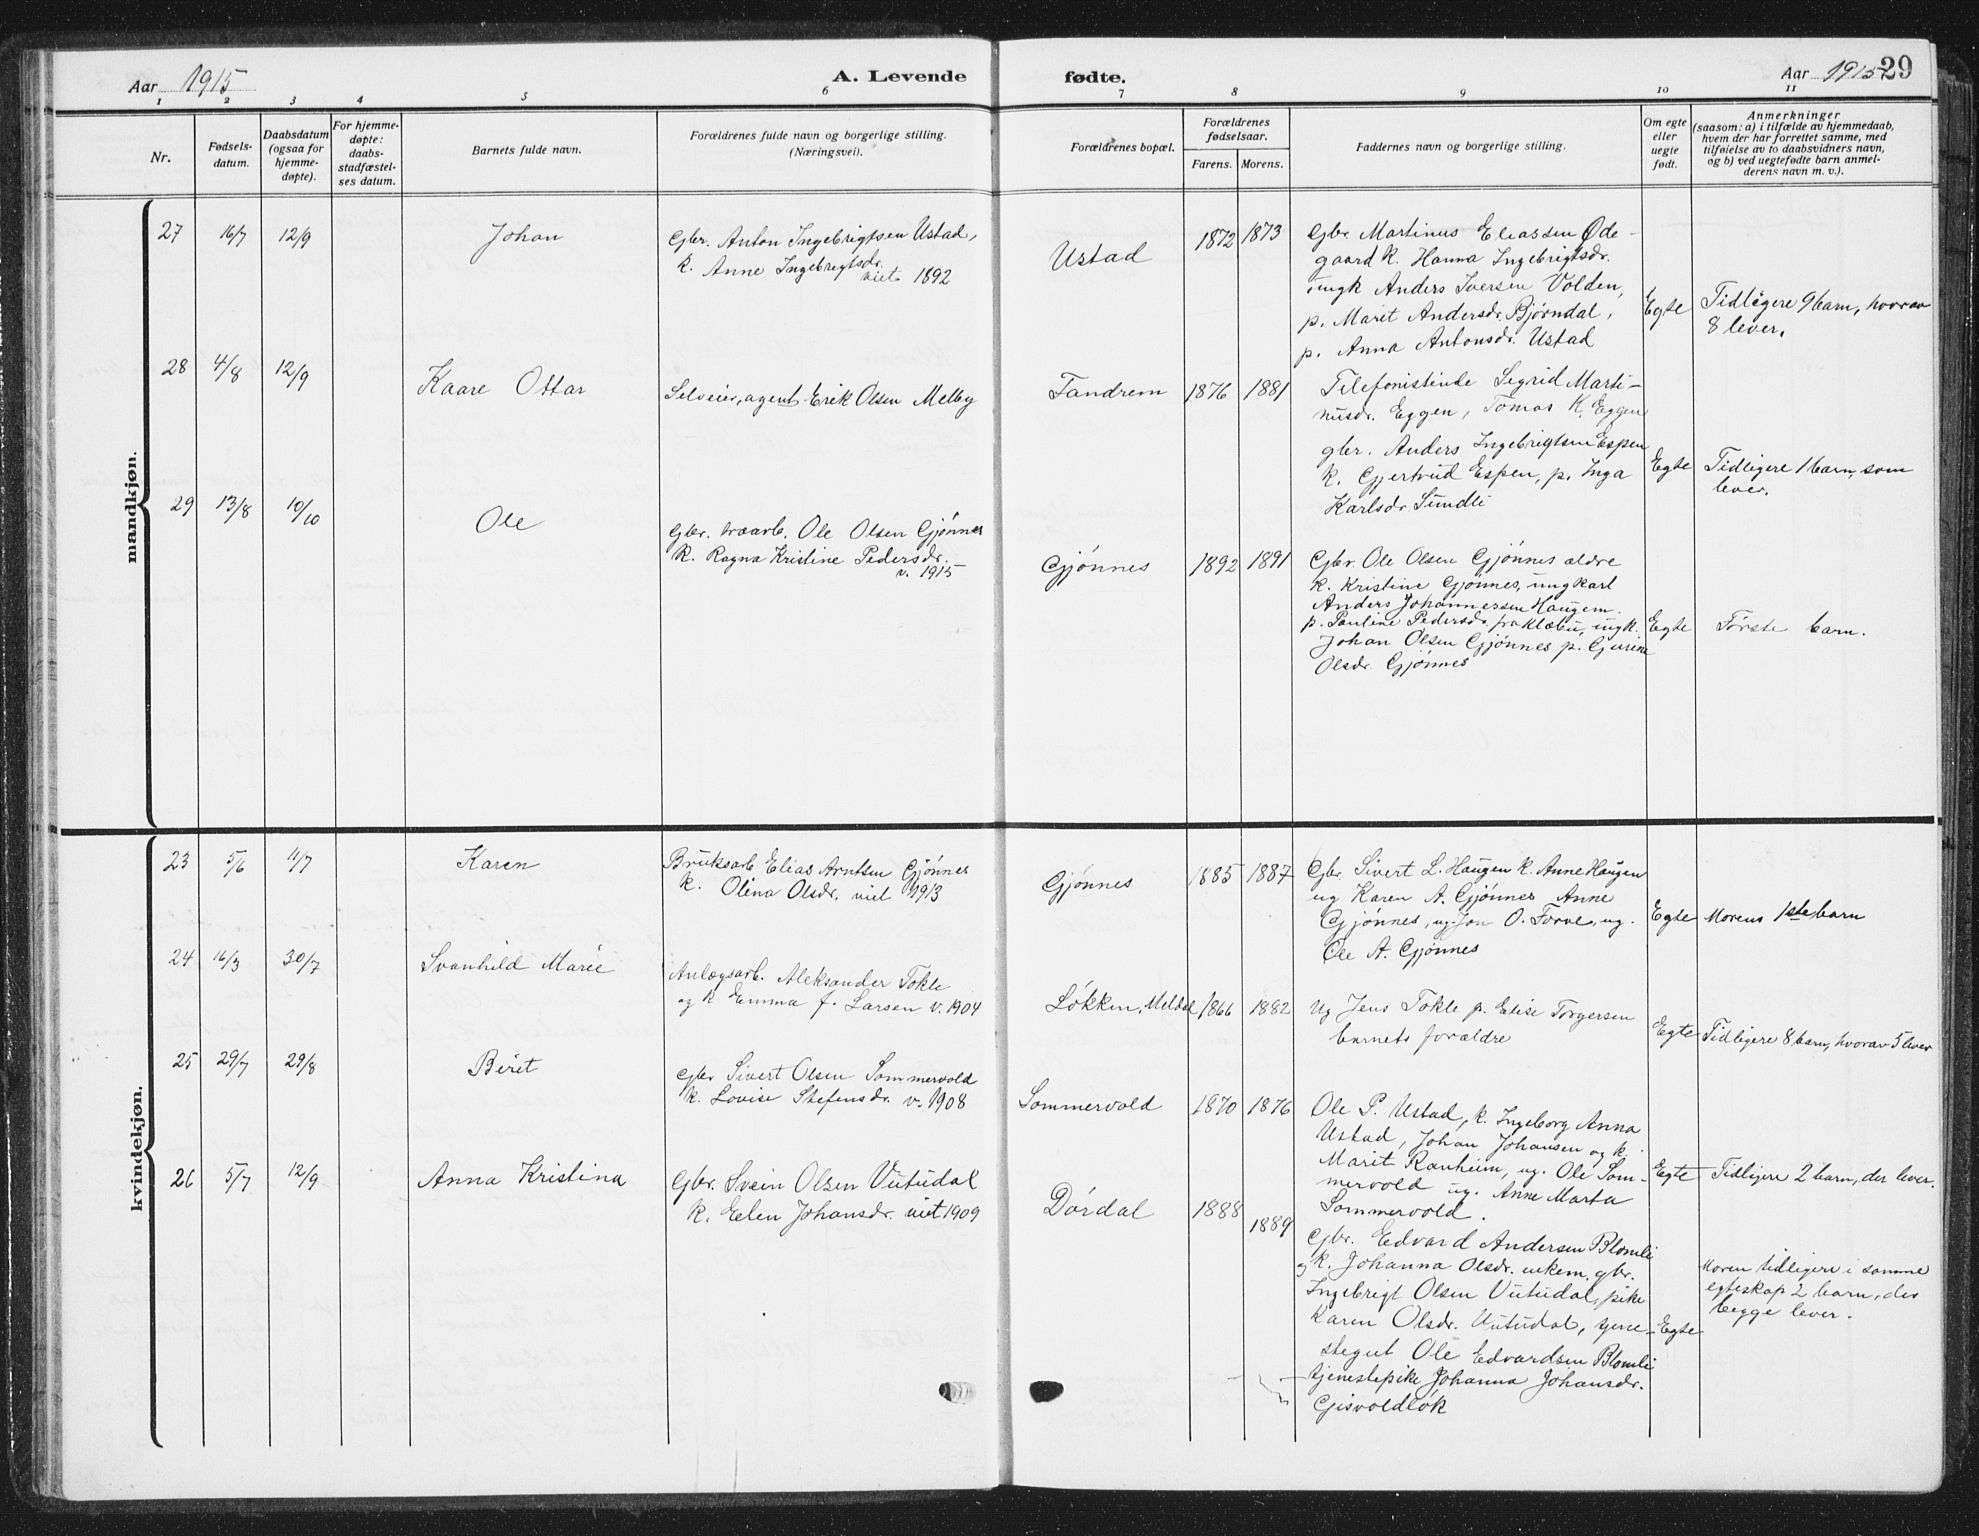 Aar 1915
A. Levende
fødte.
Aar 1915
29
1 2 3 4 5 6 7 8 9 10 11
Nr.
Fødsels-
datum.
Daabsdatum
(ogsaa for
hjemme-
døpte).
For hjemme-
døpte:
daabs-
stadfæstel-
ses datum.
Barnets fulde navn.
Forældrenes fulde navn og borgerlige stilling.
(Næringsvei).
Forældrenes bopæl.
Forældrenes
fødselsaar.
Farens. Morens.
Faddernes navn og borgerlige stilling.
Om egte
eller
uegte
født.
Anmerkninger
(saasom: a) i tilfælde av hjemmedaab,
hvem der har forrettet samme, med
tilføielse av to daabsvidners navn,
og b) ved uegtefødte barn anmel-
derens navn m. v.).
mandkjøn.
27 16/7 12/9 Johan
Gbr. Anton Ingebrigtsen Ustad,
k. Anne Ingebrigtsdr.
viet 1892
Ustad
1872 1873
Gbr Martinus Eliassen Øde-
gaard k. Hanna Ingebrigtsdr.
ungk Anders Iversen Volden,
p. Marit Andersdr. Bjørndal,
p. Anna Antonsdr. Ustad
Egte
Tidligere 9 barn, hvorav
8 lever.
28 4/8 12/9 Kaare Ottar
Selveier, agent Erik Olsen Melby
Tandrem
1876 1881
Telefonistinde Sigrid Marti-
nusdr. Eggen, Tomas K. Eggen
gbr. Anders Ingebrigtsen Espen
k. Gjertrud Espen, p. Inga
Karlsdr. Sundli
Egte
Tidligere 1 barn, som
lever.
29 13/8 10/10 Ole
Gbr. træarb. Ole Olsen Gjønnes
k. Ragna Kristine Pedersdr.
v. 1915
Gjønnes
1892 1891
Gbr. Ole Olsen Gjønnes ældre
k. Kristine Gjønnes, ungkarl
Anders Johannessen Haugem.
p. Pauline Pedersdr. fra Klæbu, ungk.
Johan Olsen Gjønnes p. Gjurine
Olsdr. Gjønnes
Egte
Første barn.
kvindekjøn.
23 5/6 11/7 Karen
Bruksarb Elias Arntsen Gjønnes
k. Olina Olsdr. viet 1913
Gjønnes
1885 1887
Gbr. Sivert L. Haugen k. Anne Haugen
ug Karen A. Gjønnes Anne
Gjønnes, ug. Jon O. Forve, ug.
Ole A. Gjønnes
Egte
Morens 1ste barn
24 16/3 30/7 Svanhild Marie
Anlægsarb. Aleksander Tokle
og k Emma f. Larsen v. 1904
Løkken, Meldal
1866 1882
Ug Jens Tokle p. Elise Torgersen
barnets forældre
Egte
Tidligere 8 barn, hvorav 5 lever
25 29/7 29/8 Berit
Gbr Sivert Olsen Sommervold
k. Lovise Stefensdr. v. 1908
Sommervold
1870 1876
Ole P. Ustad, k. Ingeborg Anna
Ustad, Johan Johansen og k.
Marit Ranheim, ug. Ole Som-
mervold ug. Anne Marta
Sommervold.
Egte
Tidligere 2 barn, der lever.
26 5/7 12/9 Anna Kristina
Gbr. Svein Olsen Vutudal
k. Elen Johansdr. viet 1909
Dørdal
1888 1889
Gbr. Edvard Andersen Blomli
og k. Johanna Olsdr. enkem. gbr.
Ingebrigt Olsen Vutudal, pike
Karen Olsdr. Vutudal, tjene-
stegut Ole Edvardsen Blomli
tjenestepike Johanna Johansdr.
Gjisvoldløk
Egte
Moren tidligere i samme
egteskap 2 barn, der
begge lever.